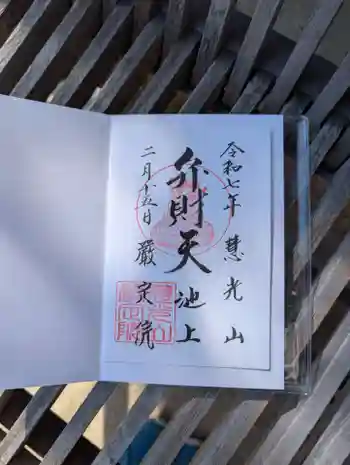 令和七年 慧光山
弁財天 池上
二月十五日 厳定院